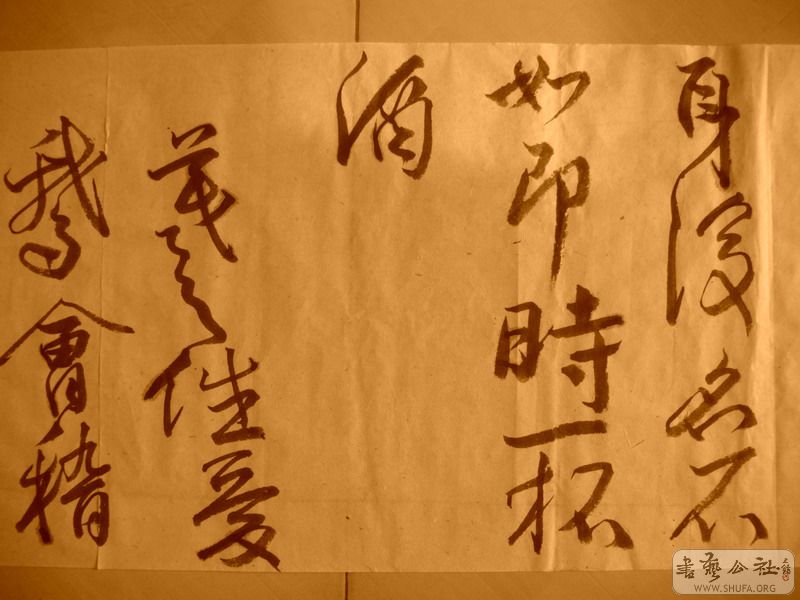 身後名不
如即時一杯
酒
羲之性愛
鵝會稽
書藝公社
WWW.SHUFA.ORG